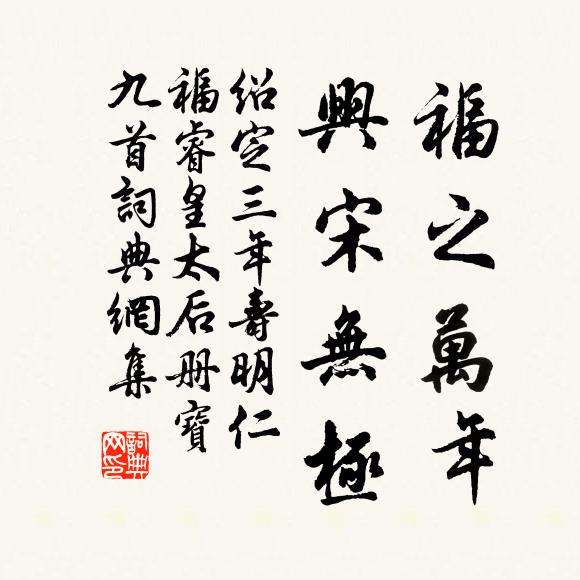 福之萬年
興宋無極
绍定三年壽明仁
福睿皇太后册寶
九首詞典網集
詞典网印